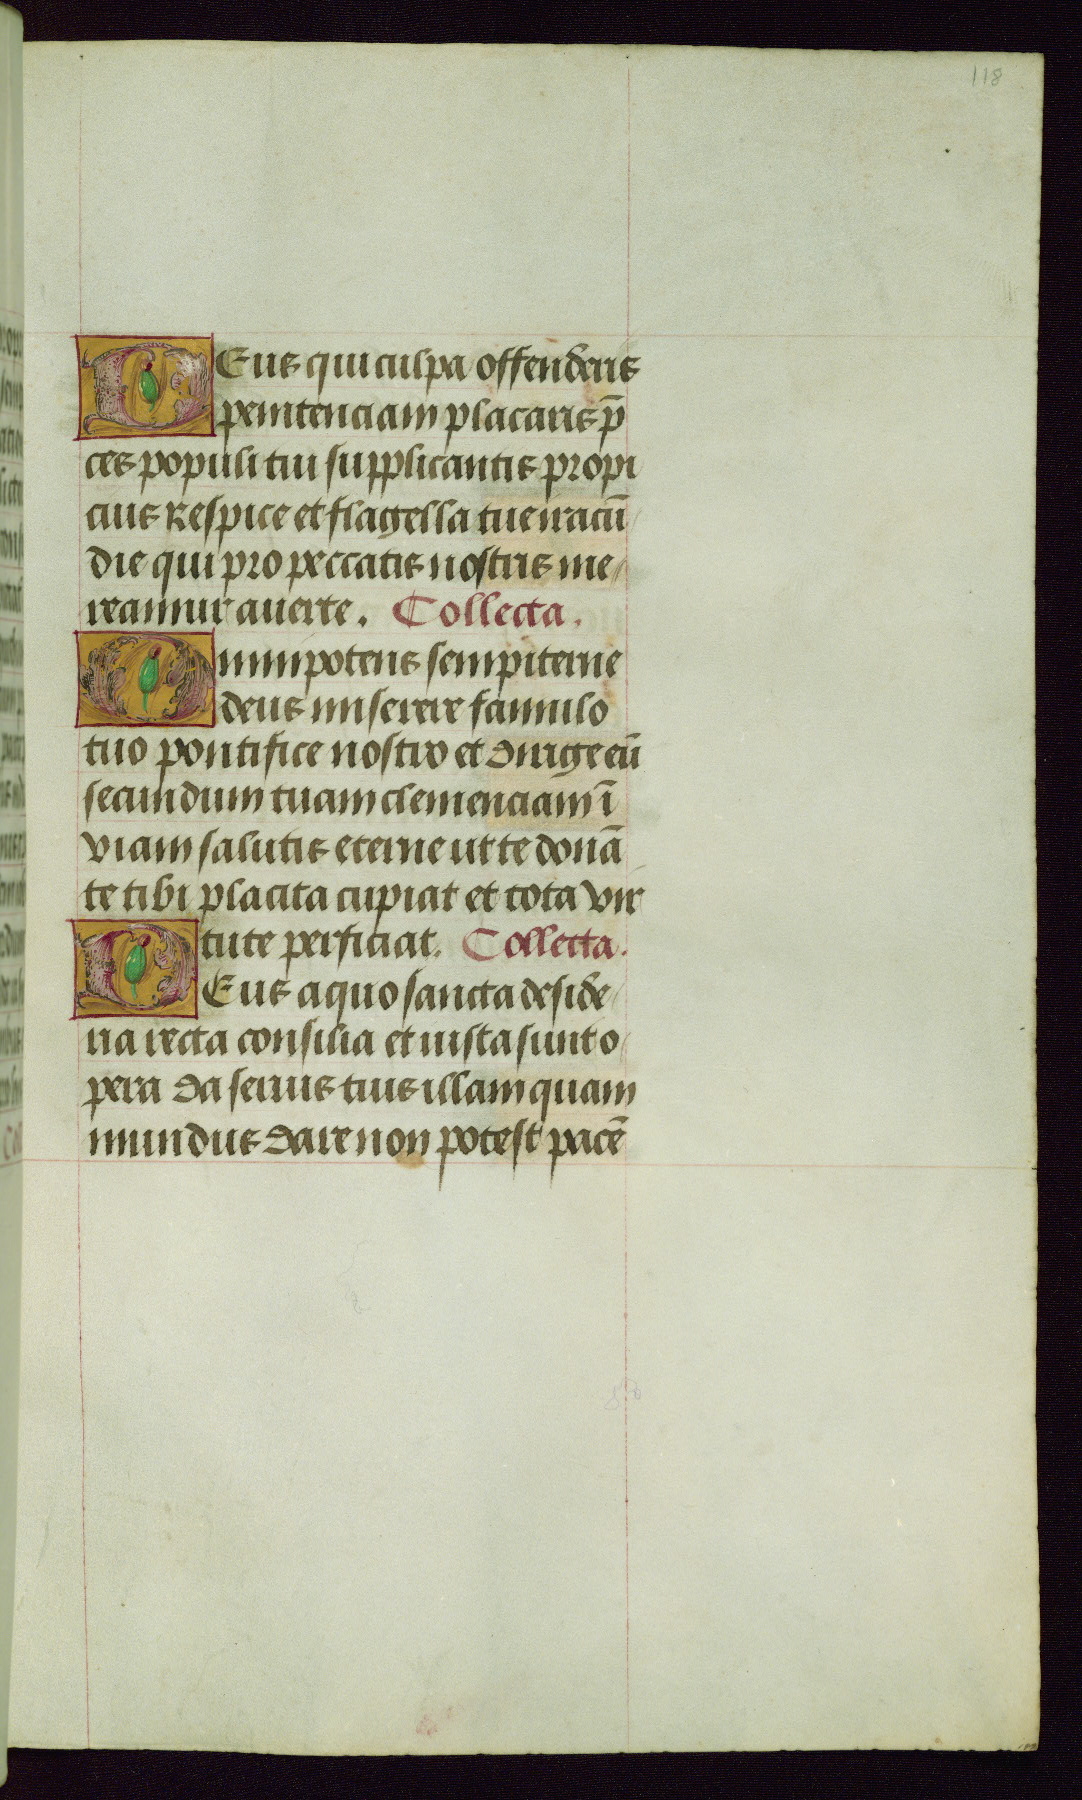 118
DEus qui culpa offenderis
penitenciam placaris p̄
ces populi tui supplicantis propi
cius respice et flagella tue iracū
die qui pro peccatis nostris me
reamur auerte. Collecta.
Omnipotens sempiterne
deus miserere famulo
tuo pontifice nostro et dirige eū
secundum tuam clemenciam ī
viam salutis eterne ut te donā
te tibi placita cupiat et tota vir
tute perficiat. Collecta.
DEus a quo sancta deside
ria recta consilia et iusta sunt o
pera da seruis tuis illam quam
mundus dare non potest pacē